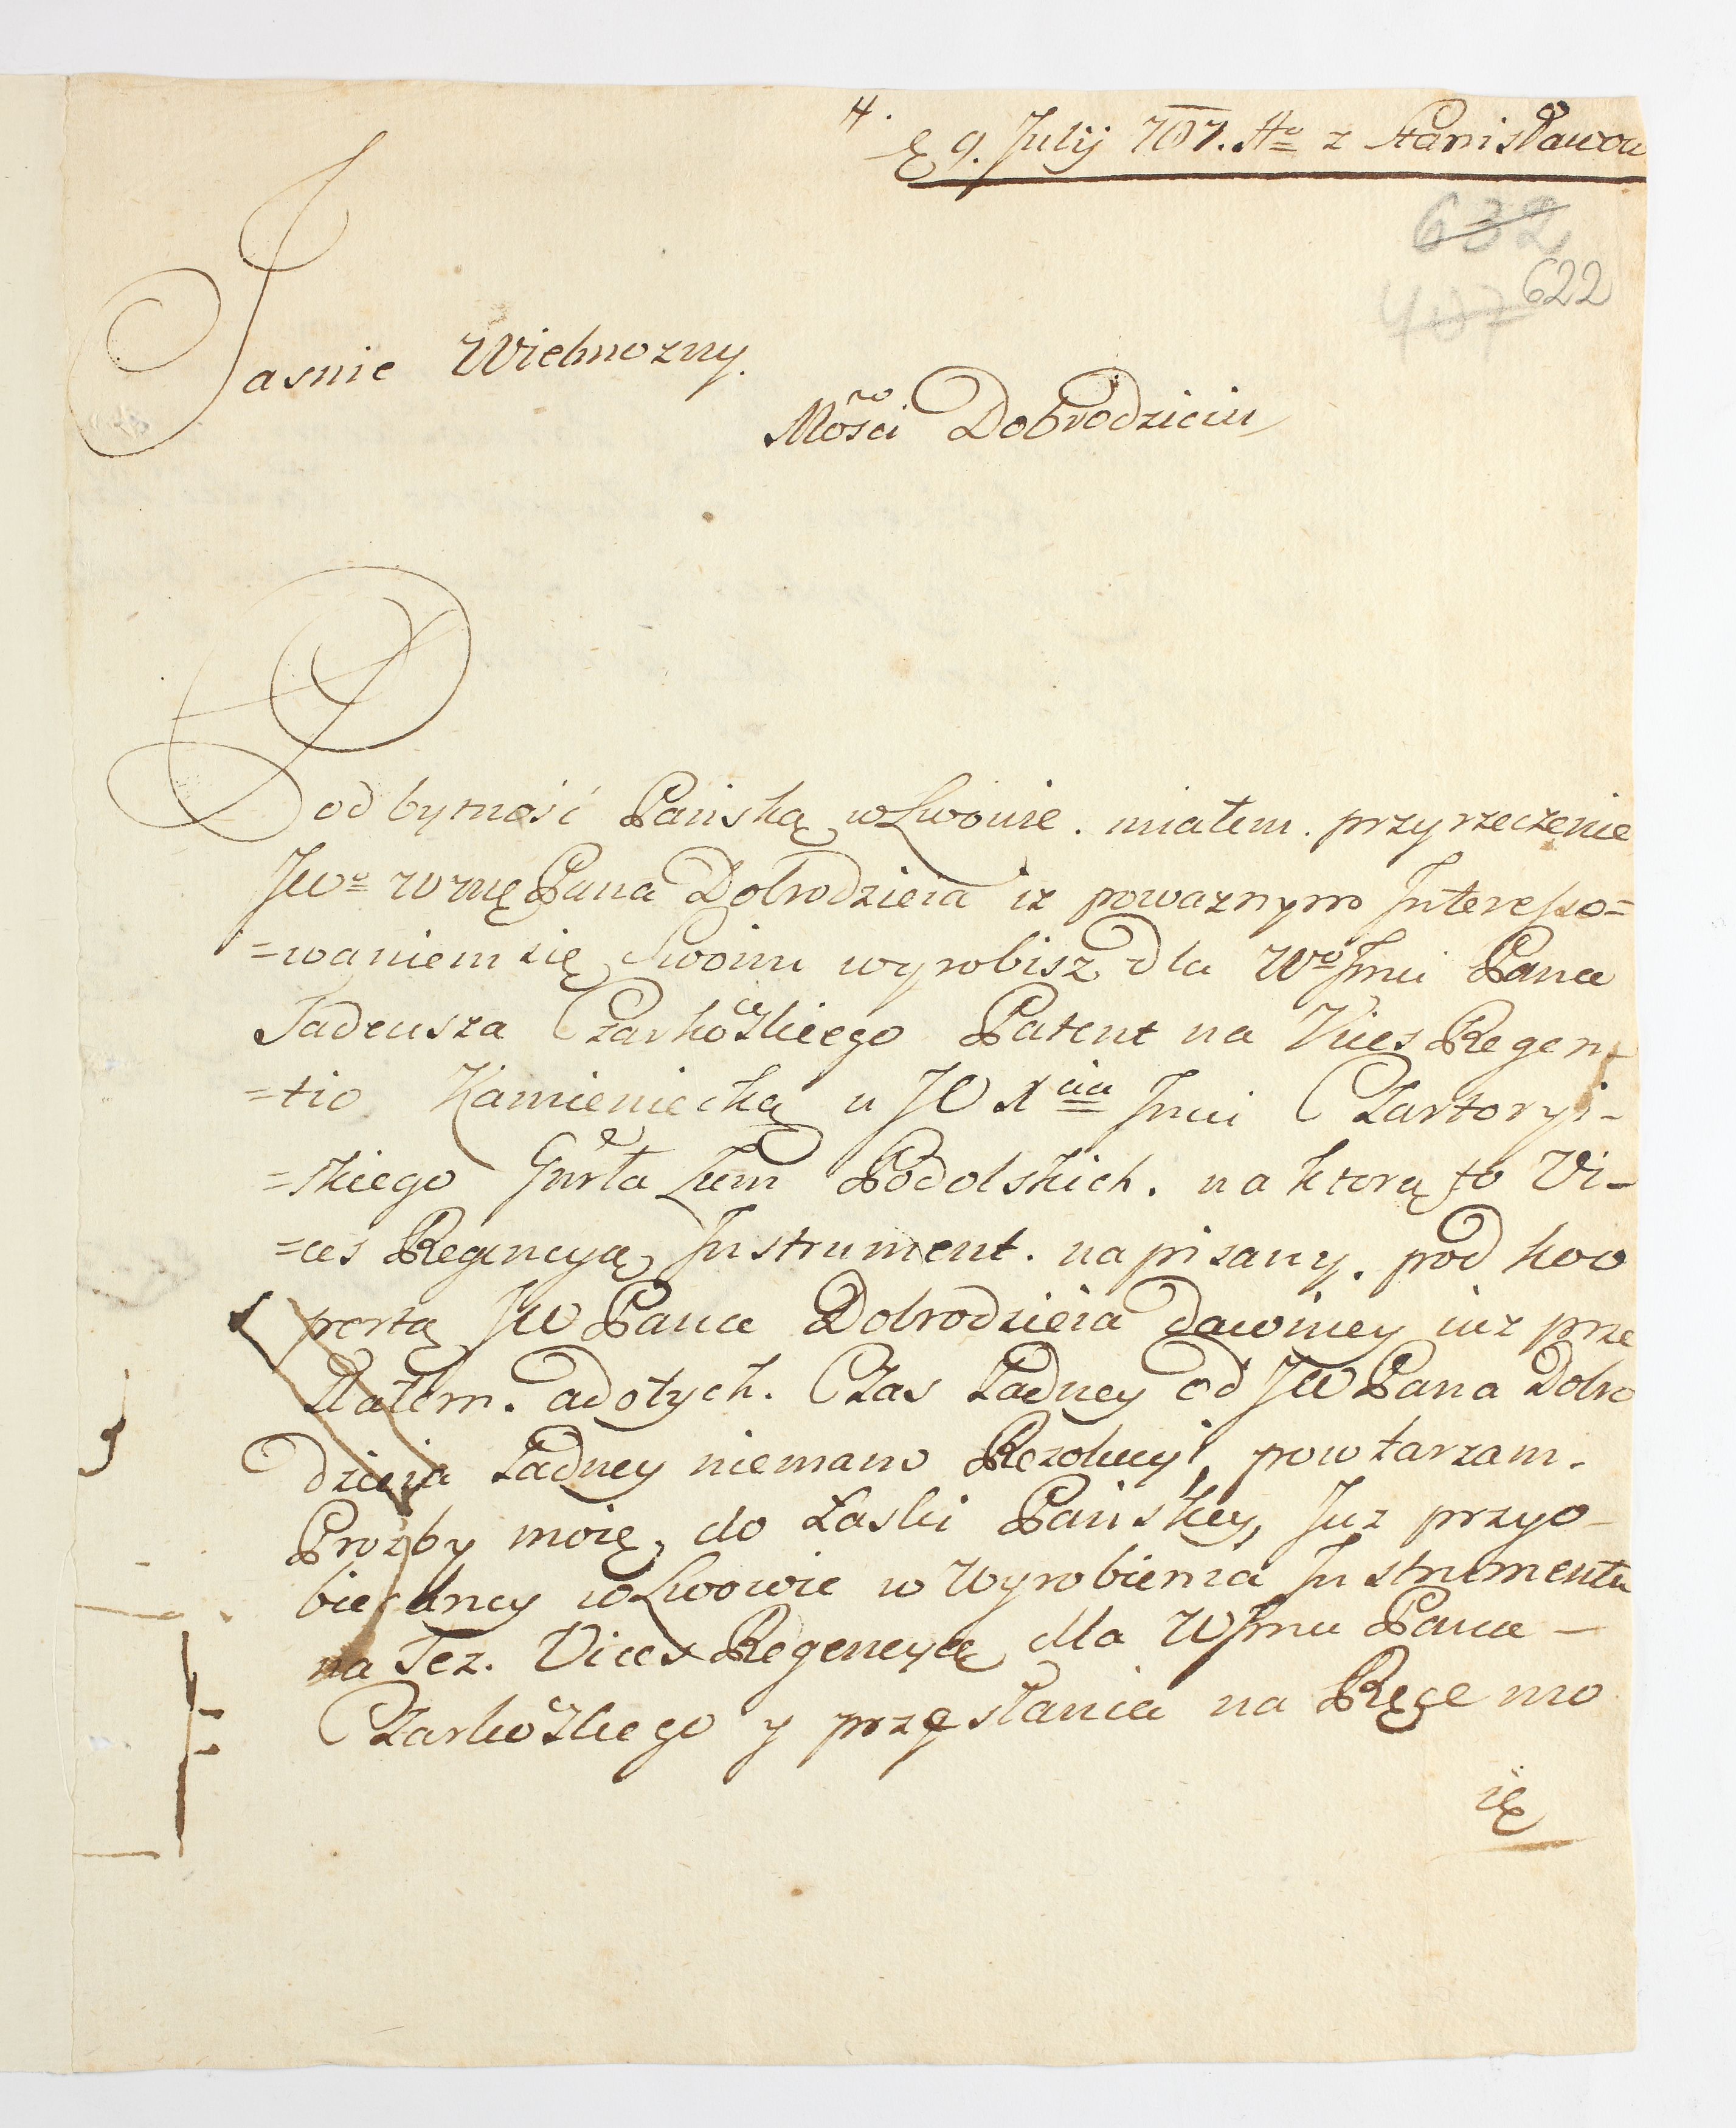 4.
9. Julij 787. Ao z Stanisławow
632
622
Jasnie Wielmozny.
Mości Dobrodzieiu
Pod bytność Pańską w Lwowie. miałem. przyrzeczenie
JWo Wmę Pana Dobrodzieia iz powaznym Interesso=
=waniem się Swoim wyrobisz dla Wo Jmci Pana
Tadeusza Czarkowskiego Patent na Vices Regen
=tio Kamieniecką u JO Xcia Jmci Czartoryi-
=skiego Gnrła Ziem Podolskich. na ktorą to Vi-
=ces Regencyą Instrument. napisany. pod koo
pertą JW Pana Dobrodzieia dawniey iuz prze
słałem. adotych. Czas Zadney od JW Pana Dobro
dzieia Zadney niemam Rezolucyi, powtarzam.
Prozby moię, do Łaski Pańskiey, Juz przyo-
biecaney w Lwowie w Wyrobienia Instrumentu
na Tez. Vices Regencyą dla WJmci Pana -
Czarkowskiego y przęsłania na Ręce mo
ię